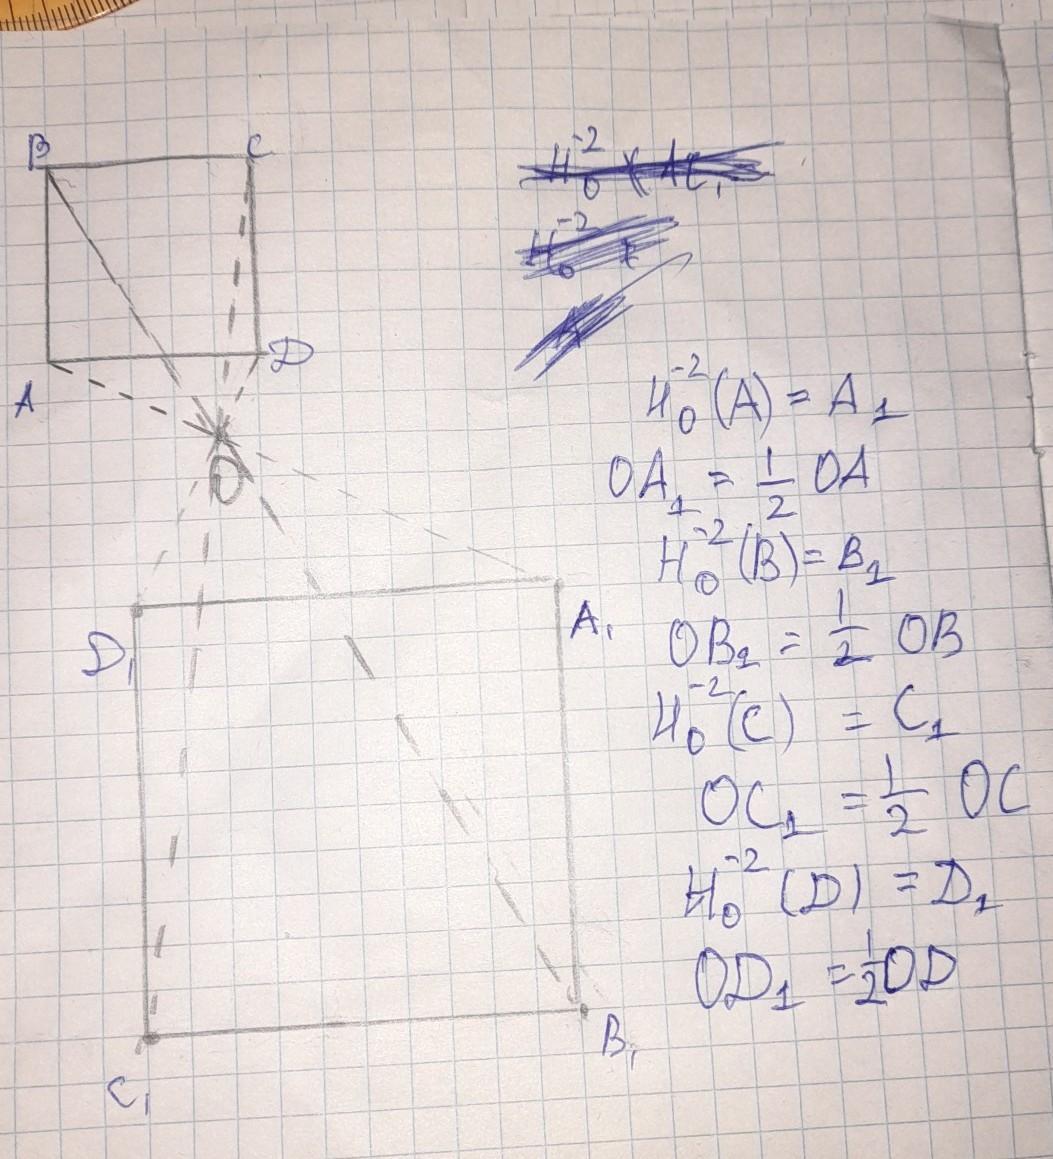 B C
A D
O
D₁ A₁
C₁ B₁
H₀⁻²(A) = A₁
OA₁ = 1/2 OA
H₀⁻²(B) = B₁
OB₁ = 1/2 OB
H₀⁻²(C) = C₁
OC₁ = 1/2 OC
H₀⁻²(D) = D₁
OD₁ = 1/2 OD